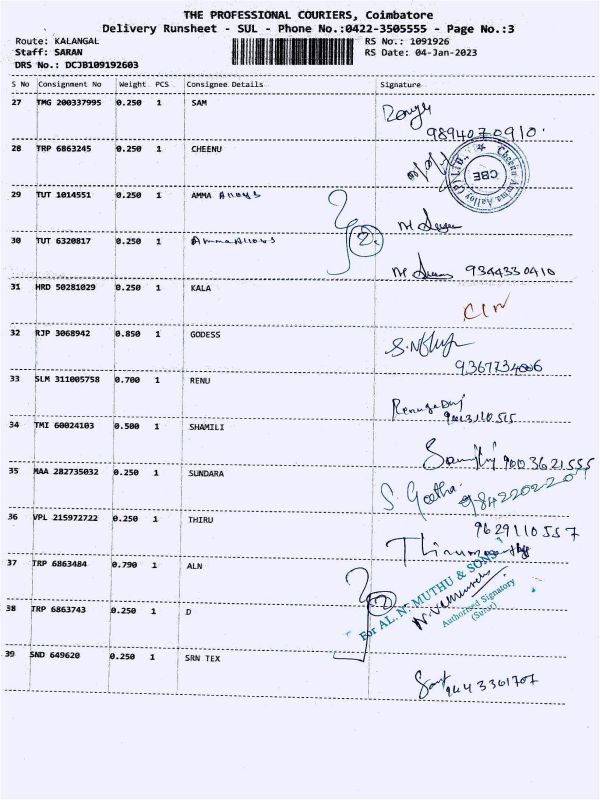 THE PROFESSIONAL COURIERS, Coimbatore
Delivery Runsheet - SUL - Phone No.:0422-3505555 - Page No.:3
Route: KALANGAL RS No.: 1091926
Staff: SARAN RS Date: 04-Jan-2023
DRS No.: DCJB109192603
S No Consignment No Weight PCS Consignee Details Signature
27 TMG 200337995 0.250 1 SAM
9894070910
28 TRP 6863245 0.250 1 CHEENU
CBE
29 TUT 1014551 0.250 1 AMMA Alloys
2
30 TUT 6320817 0.250 1 Amma Alloys
9344330410
31 HRD 50281029 0.250 1 KALA
32 RJP 3068942 0.850 1 GODESS
9367734006
33 SLM 311005758 0.700 1 RENU
34 TMI 60024103 0.500 1 SHAMILI
9003621555
35 MAA 282735032 0.250 1 SUNDARA
S. Geetha
36 VPL 215972722 0.250 1 THIRU
9629110557
37 TRP 6863484 0.790 1 ALN
For AL. N. MUTHU & SONS
2
Authorised Signatory
(Sulur)
38 TRP 6863743 0.250 1 D
39 SND 649620 0.250 1 SRN TEX
9443301707